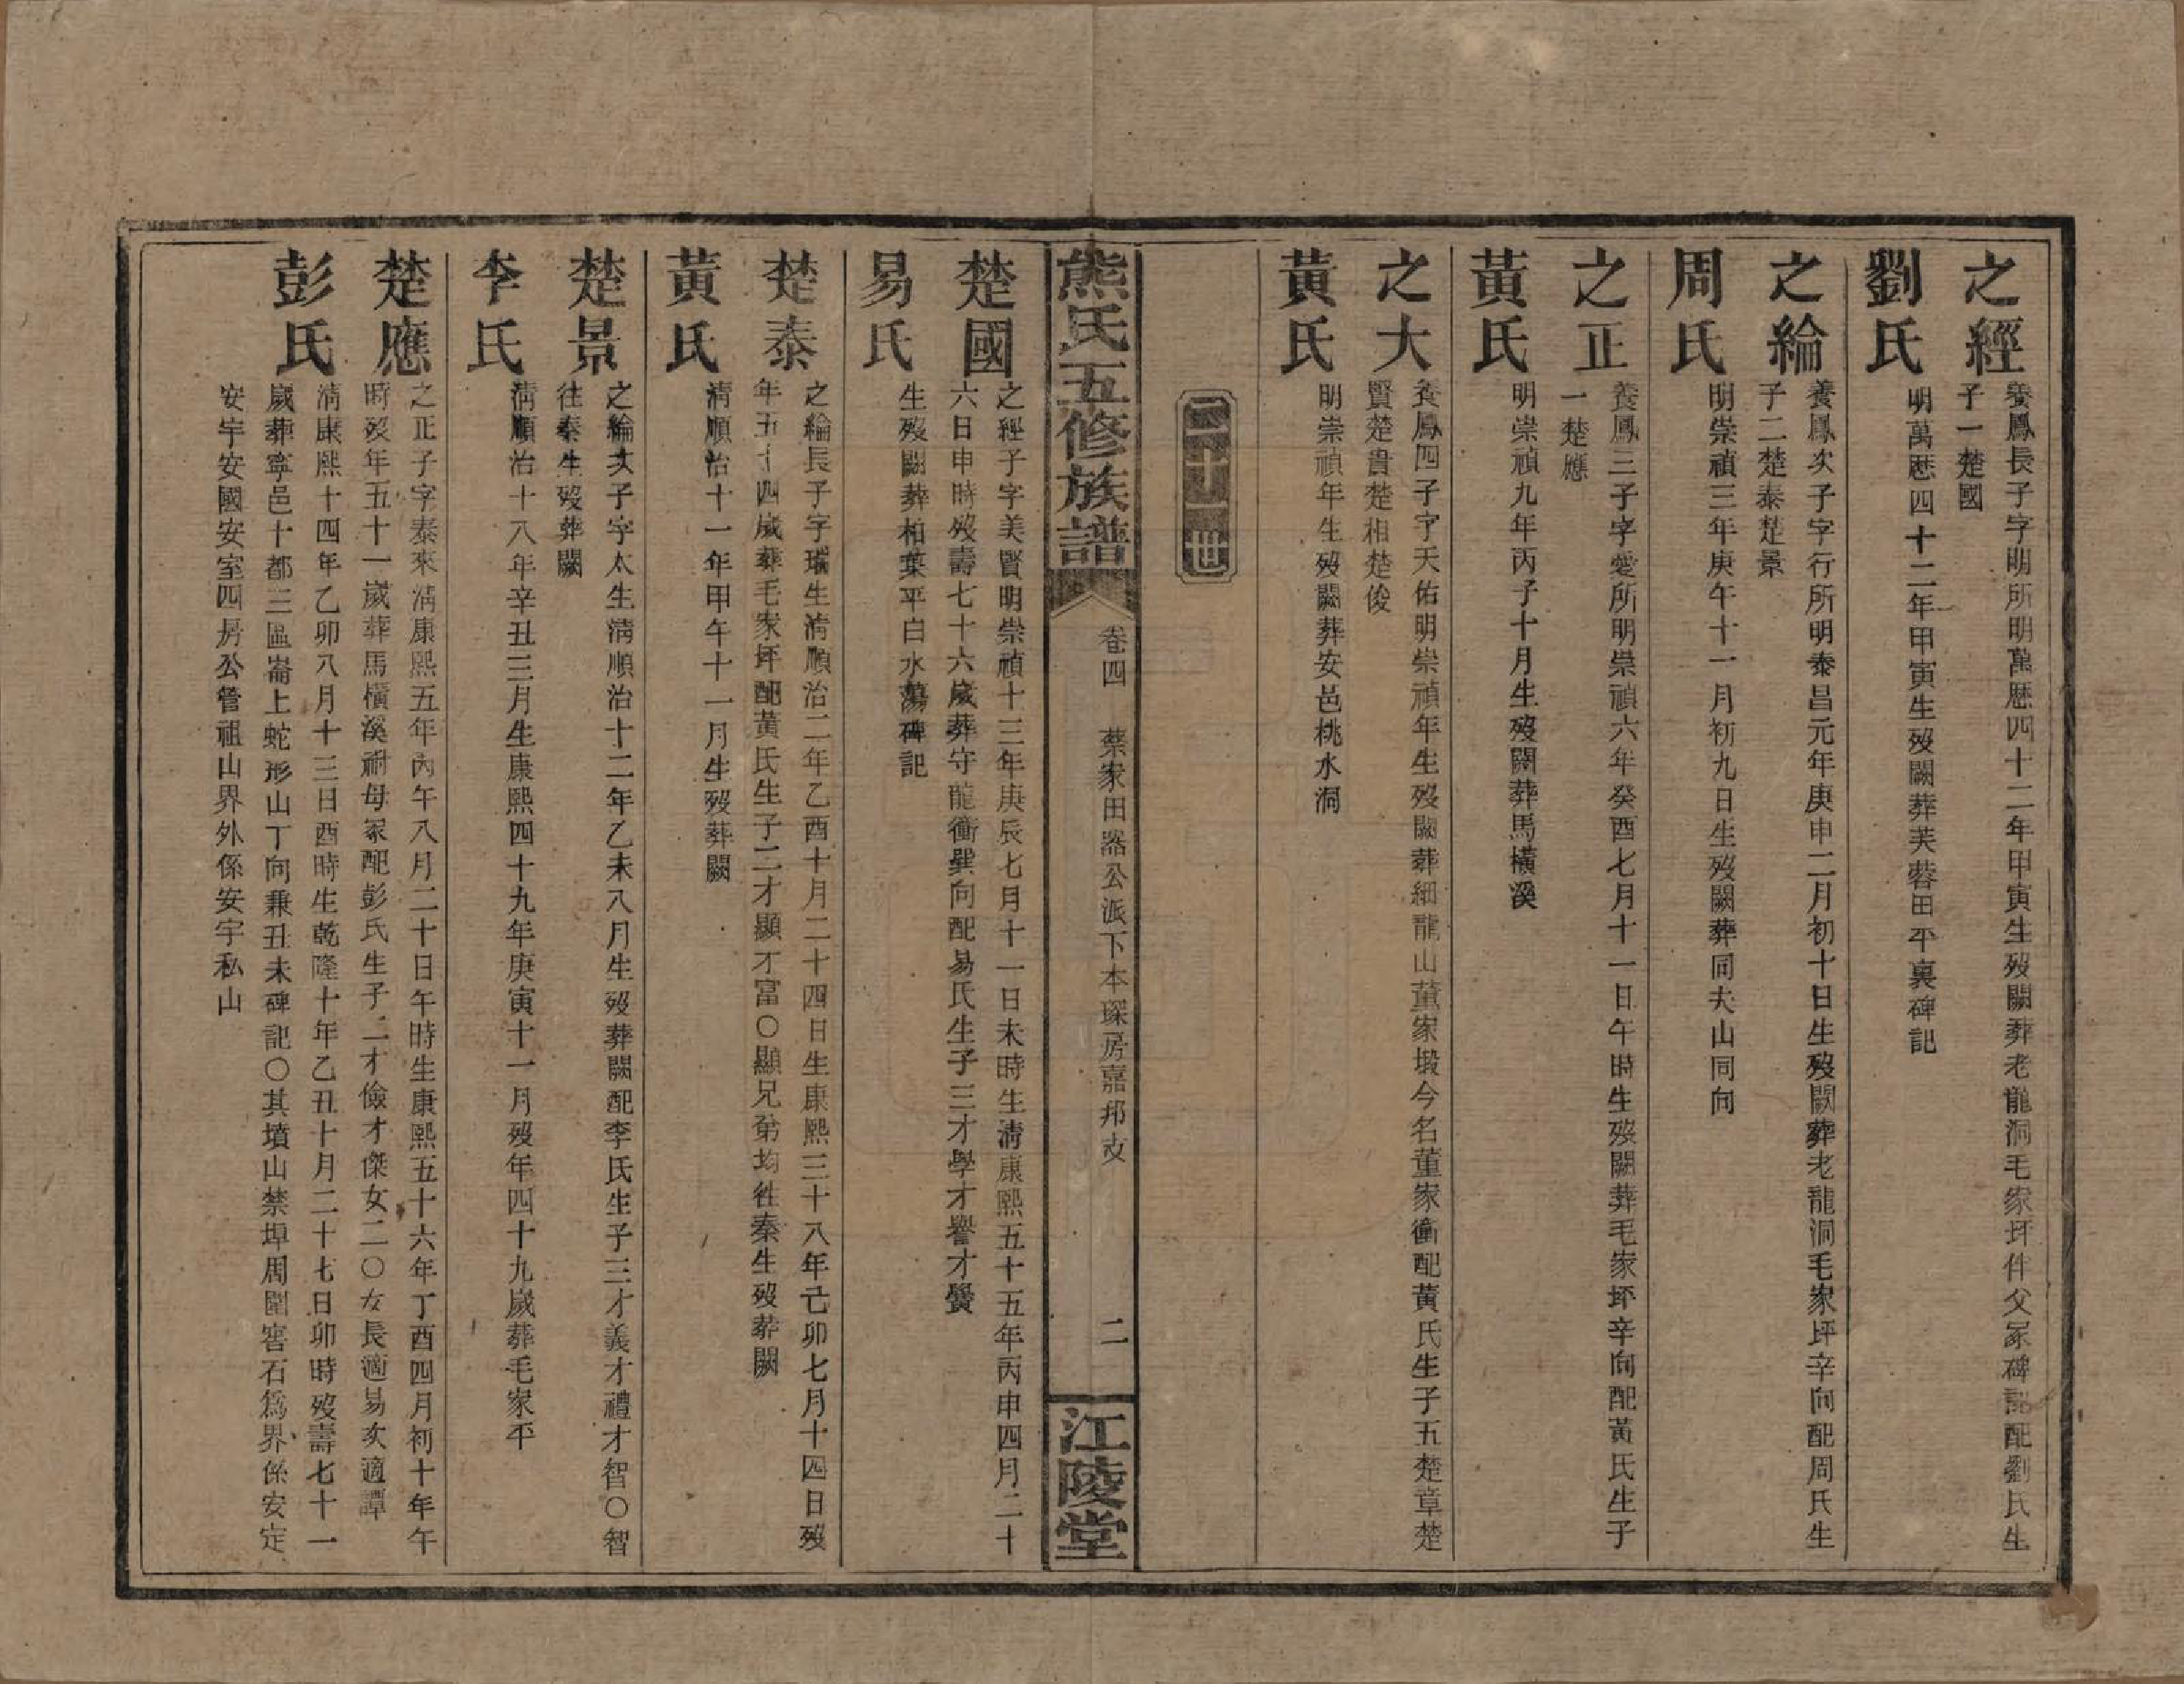 之經
養鳳長子字明所明萬歷四十二年甲寅生歿闕葬老龍洞毛家坪伴父冢碑記配劉氏生
子一楚國
劉氏
明萬歷四十二年甲寅生歿闕葬芙蓉田平裏碑記
之綸
養鳳次子字行所明泰昌元年庚申二月初十日生歿闕葬老龍洞毛家坪辛向配周氏生
子二楚泰楚景
周氏
明崇禎三年庚午十一月初九日生歿闕葬同夫山同向
之正
養鳳三子字愛所明崇禎六年癸酉七月十一日午時生歿闕葬毛家坪辛向配黃氏生子
一楚應
黃氏
明崇禎九年丙子十月生歿闕葬馬橫溪
之大
養鳳四子字天佑明崇禎年生歿闕葬細龍山董家塅今名董家衝配黃氏生子五楚章楚
賢楚貴楚相楚俊
黃氏
明崇禎年生歿闕葬安邑桃水洞
二十一世
熊氏五修族譜
卷四
蔡家田器公派下本琛房嘉邦支
二
江陵堂
楚國
之經子字美賢明崇禎十三年庚辰七月十一日未時生清康熙五十五年丙申四月二十
六日申時歿壽七十六歲葬守龍衝巽向配易氏生子三才學才譽才黌
易氏
生歿闕葬柏葉平白水蕩碑記
楚泰
之綸長子字瑞生清順治二年乙酉十月二十四日生康熙三十八年己卯七月十四日歿
年五十四歲葬毛家坪配黃氏生子二才顯才富〇顯兄弟均往秦生歿葬闕
黃氏
清順治十一年甲午十一月生歿葬闕
楚景
之綸次子字太生清順治十二年乙未八月生歿葬闕配李氏生子三才義才禮才智〇智
往秦生歿葬闕
李氏
清順治十八年辛丑三月生康熙四十九年庚寅十一月歿年四十九歲葬毛家平
楚應
之正子字泰來清康熙五年丙午八月二十日午時生康熙五十六年丁酉四月初十年午
時歿年五十一歲葬馬橫溪祔母冢配彭氏生子二才儉才傑女二〇女長適易次適譚
彭氏
清康熙十四年乙卯八月十三日酉時生乾隆十年乙丑十月二十七日卯時歿壽七十一
歲葬寧邑十都三區崙上蛇形山丁向兼丑未碑記〇其墳山禁埠周圍窖石為界係安定
安宇安國安室四房公管祖山界外係安宇私山